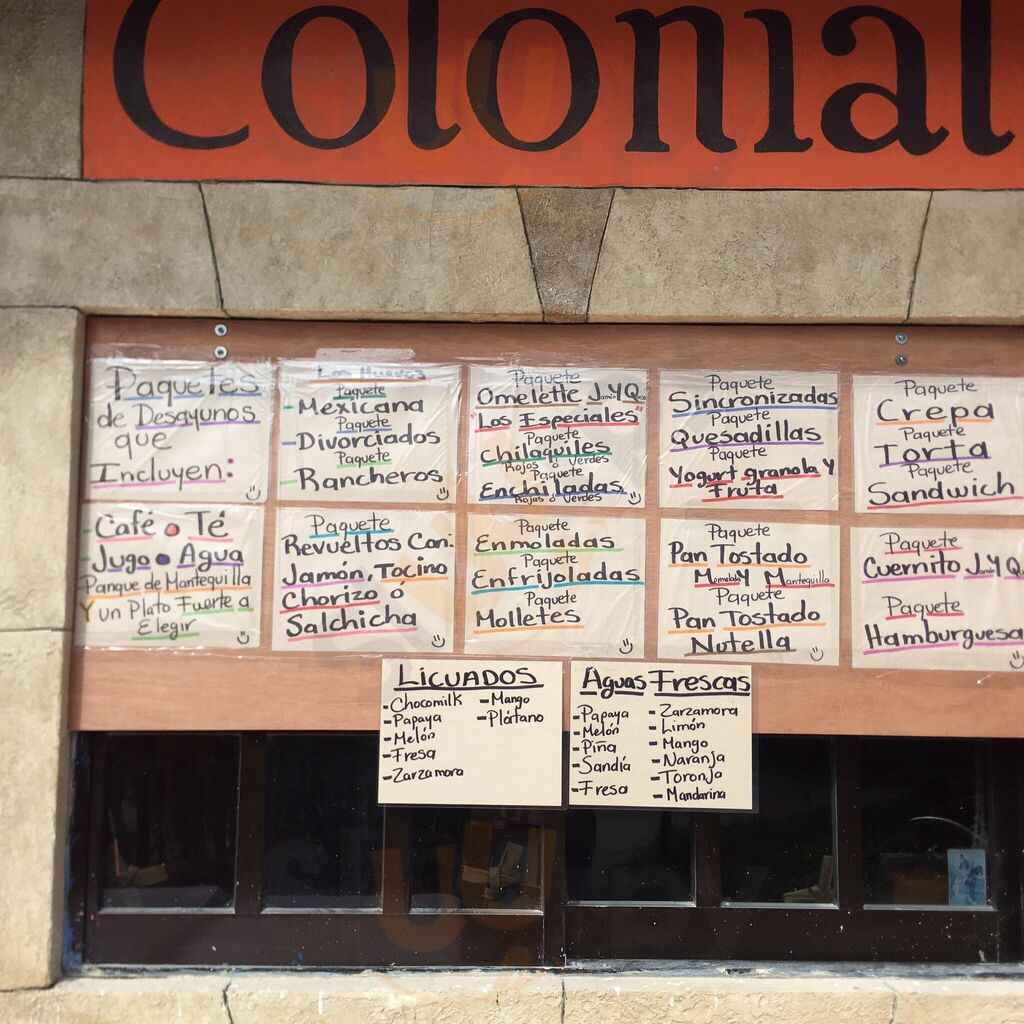 Colonial
Paquetes
de Desayunos
que
Incluyen:
Los Huevos
Paquete
-Mexicana
Paquete
-Divorciados
Paquete
-Rancheros
Paquete
Omelette JamónYQueso
"Los Especiales"
Paquete
Chilaquiles
Rojos o Verdes
Paquete
Enchilladas
Rojas o Verdes
Paquete
Sincronizadas
Paquete
Quesadillas
Paquete
Yogurt granola Y
Fruta
Paquete
Crepa
Paquete
Torta
Paquete
Sandwich
-Café o Té
-Jugo o Agua
Panque de Mantequilla
Y un Plato Fuerte a
Elegir
Paquete
Revueltos Con:
Jamón, Tocino
Chorizo ó
Salchicha
Paquete
Enmoladas
Paquete
Enfrijoladas
Paquete
Molletes
Paquete
Pan Tostado
Mermelada Y Mantequilla
Paquete
Pan Tostado
Nutella
Paquete
Cuernito JamónYQ
Paquete
Hamburguesa
Licuados
-Chocomilk
-Papaya
-Melón
-Fresa
-Zarzamora
-Mango
-Plátano
Aguas Frescas
-Papaya
-Melón
-Piña
-Sandía
-Fresa
-Zarzamora
-Limón
-Mango
-Naranja
-Toronja
-Mandarina